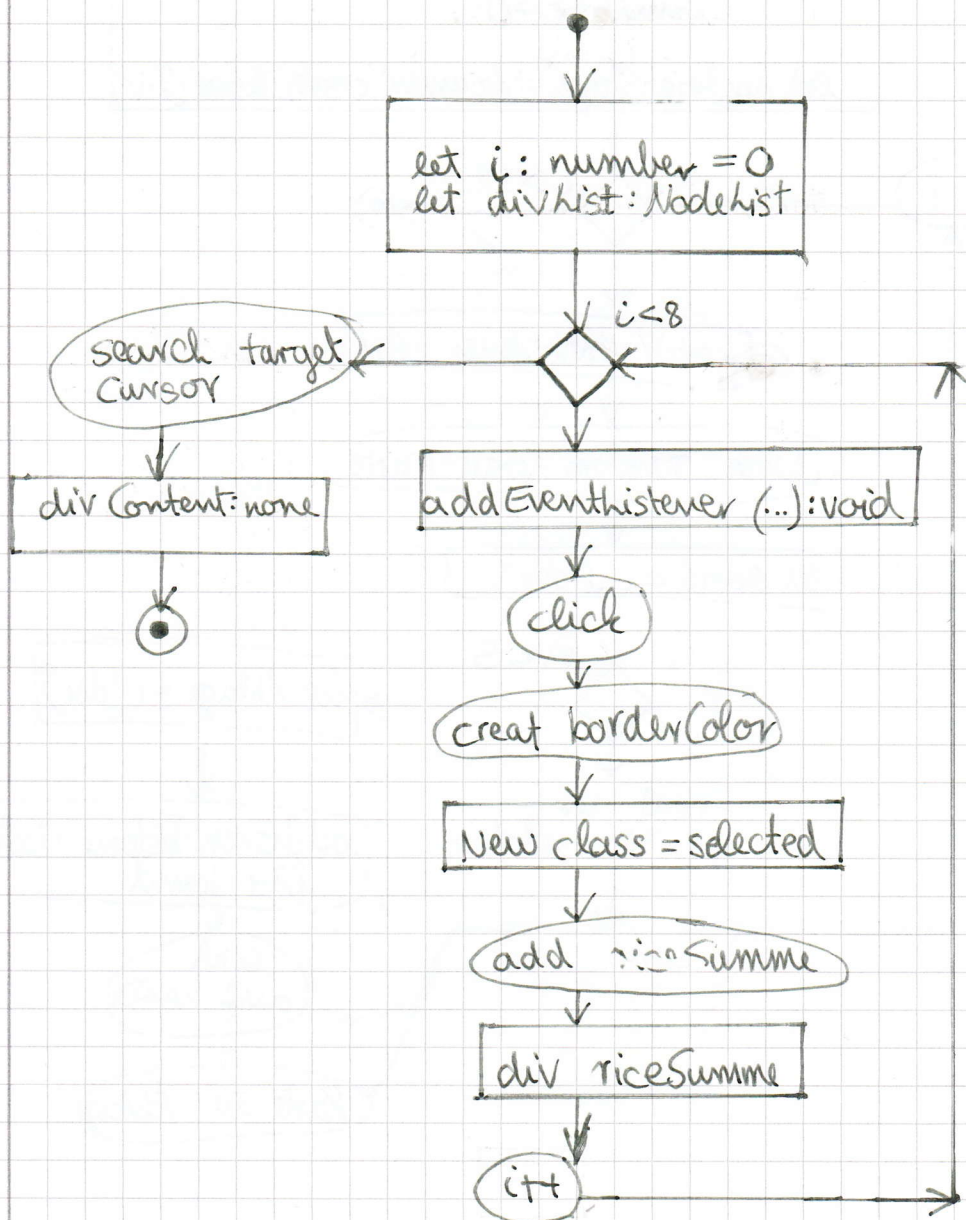 let i: number = 0
let divList: NodeList
i<8
search target
cursor
div Content: none
addEventListener (...): void
click
creat borderColor
New class = selected
add riceSumme
div riceSumme
i++